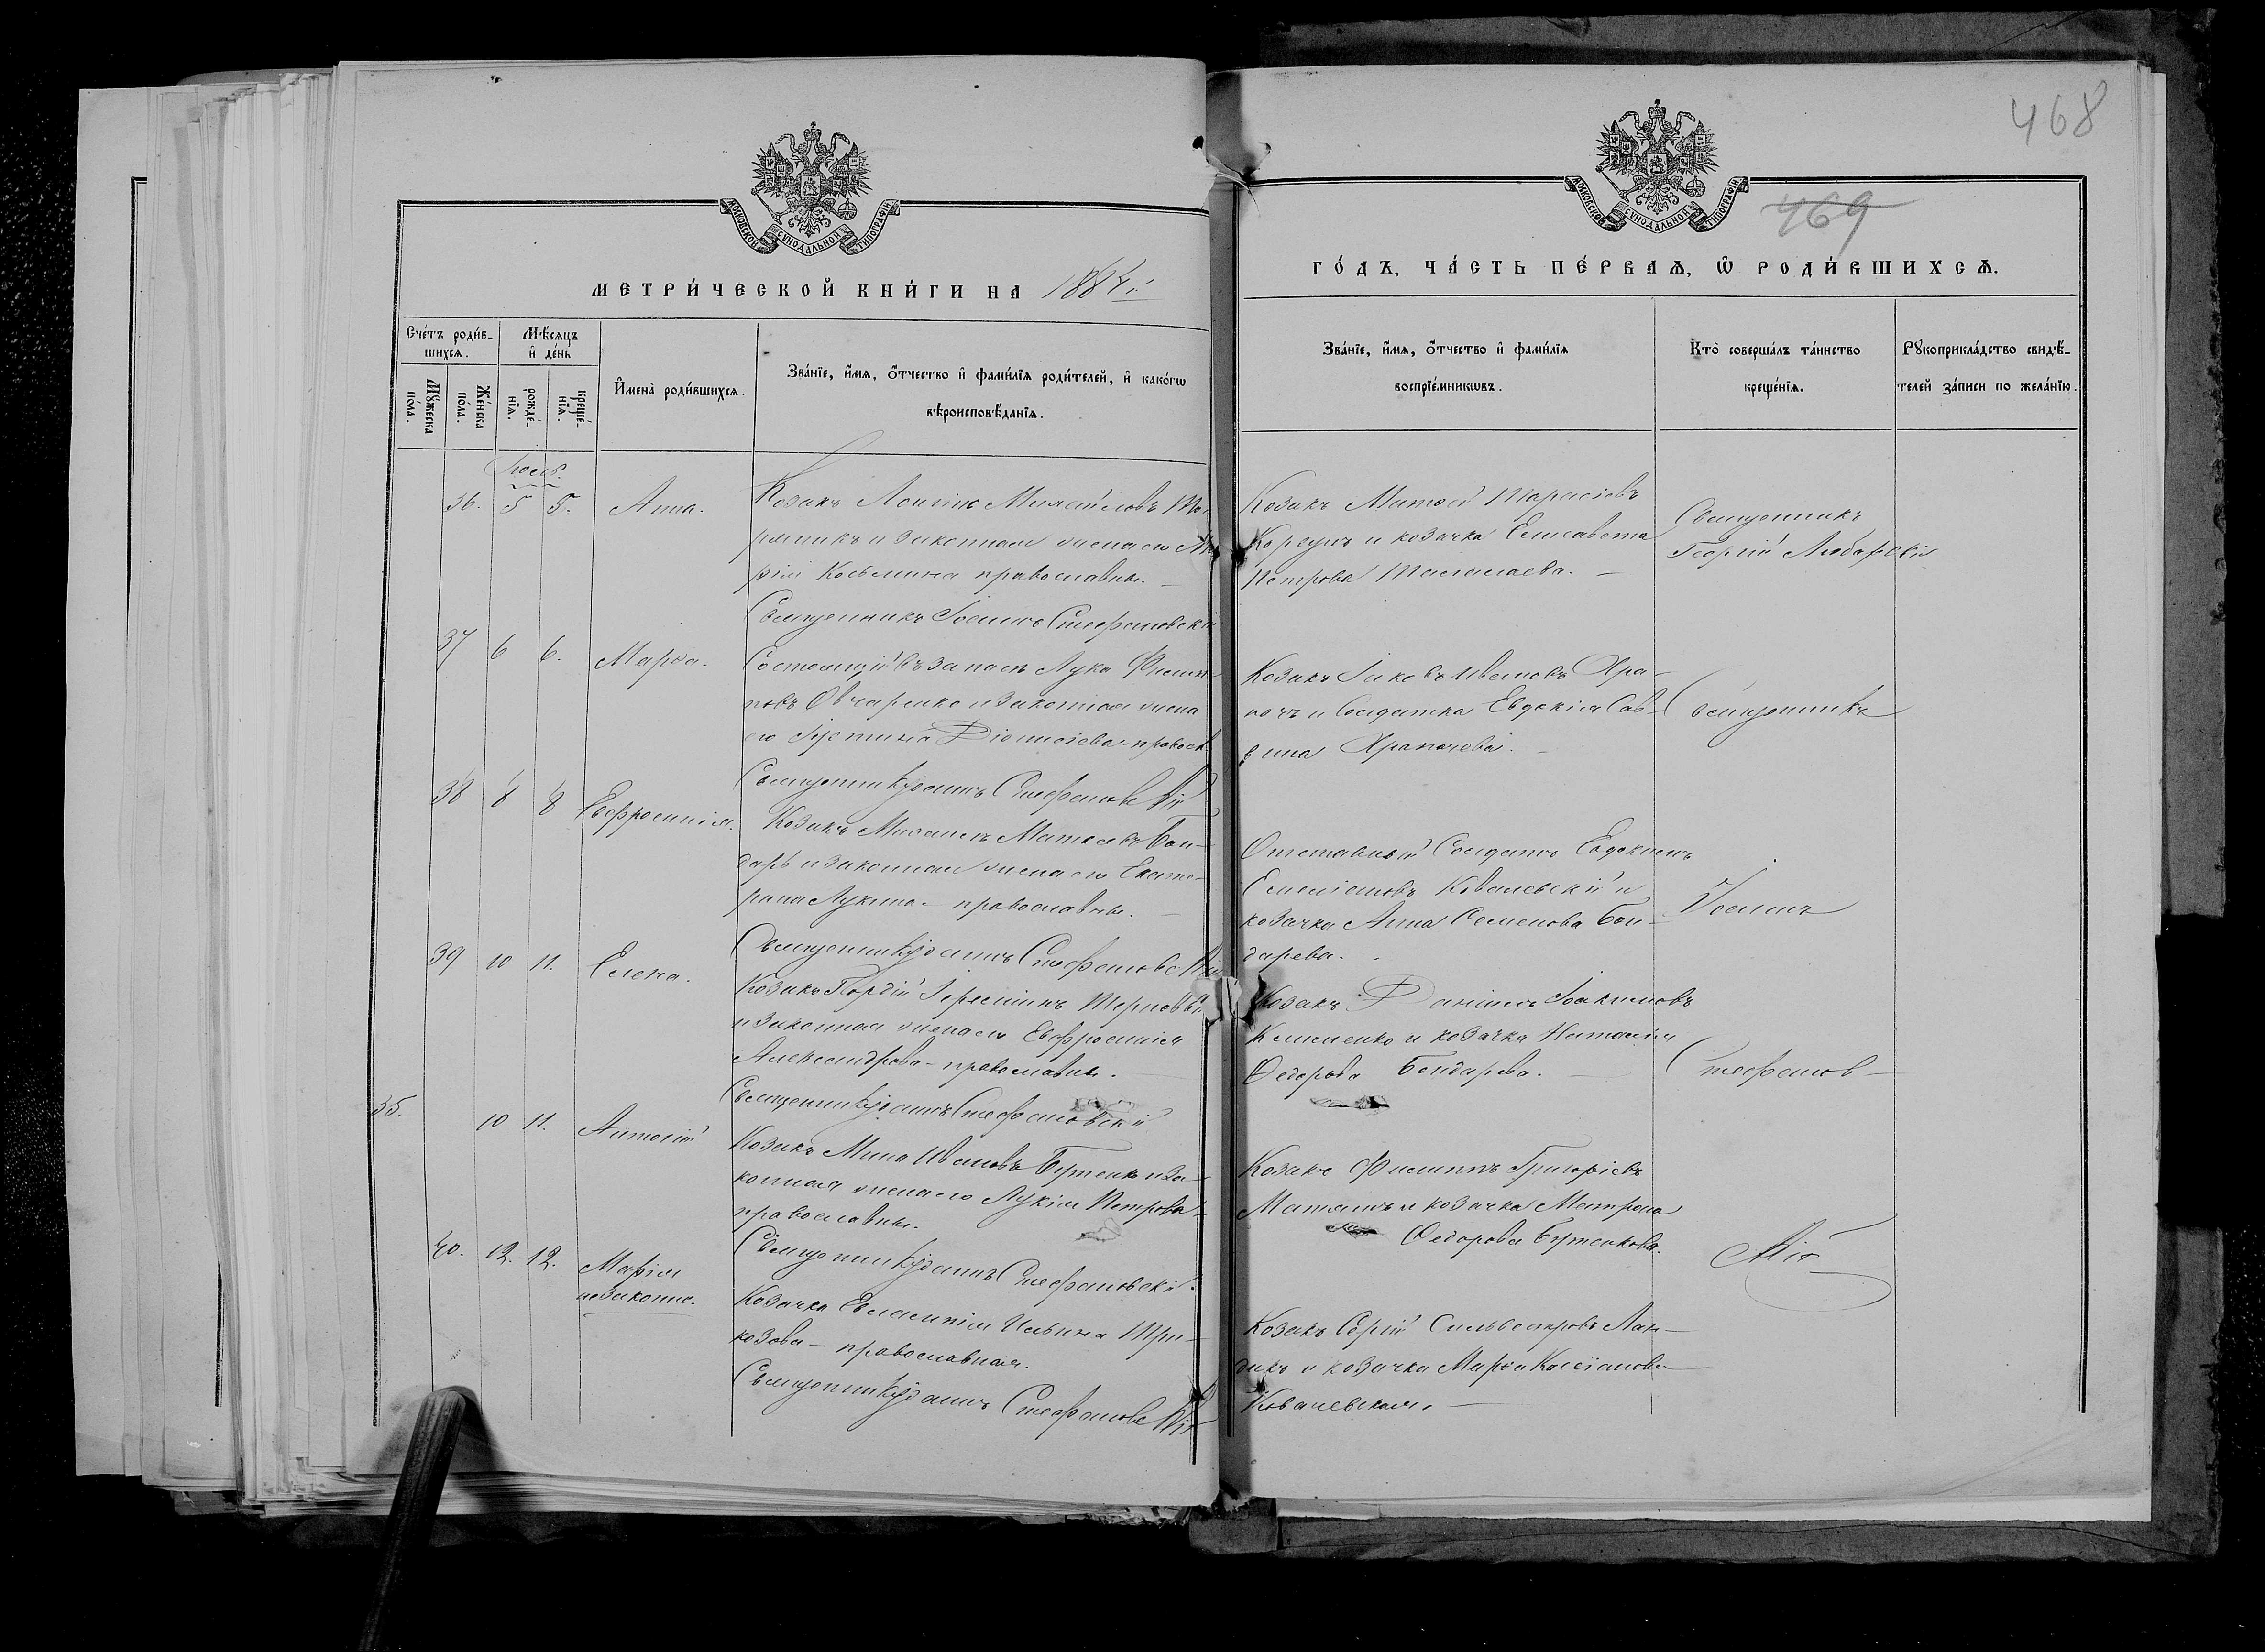 468
МОСКОВСКОЙ СѴНОДАЛЬНОЙ ТИПОГРАФІИ
МОСКОВСКОЙ СѴНОДАЛЬНОЙ ТИПОГРАФІИ
469
МЕТРИ́ЧЕСКОЙ КНИ́ГИ НА 1884 г.
ГО́ДЪ, ЧА́СТЬ ПЕ́РВАѦ, Ѡ҆ РОДИ́ВШИХСѦ.
Сче́тъ роди́в-
шихсѧ.
Мѣ́сѧцъ
и҆ де́нь
Мꙋ́жеска
по́ла.
Же́нска
по́ла.
рожде́-
нїѧ.
креще́-
нїѧ.
И҆мена̀ роди́вшихсѧ.
Зва́нїе, и҆́мѧ, ѻ҆́тчество и҆ фами́лїѧ роди́телей, и҆ како́гѡ
вѣроисповѣ́данїѧ.
Зва́нїе, и҆́мѧ, ѻ҆́тчество и҆ фами́лїѧ
воспрїе́мникѡвъ.
Кто̀ соверша́лъ та́инство
креще́нїѧ.
Рꙋкоприкла́дство свидѣ́-
телей за́писи по жела́нїю.
36. 5 5. Анна.
Козакъ Логинъ Михайловъ
и законная жена его
Косьмина православные.
Священникъ Іоаннъ Стефановскій
Козакъ Матѳей Тарасіевъ
Коргунъ и козачка Елисавета
Петрова
Священникъ
Георгій Любарскій
37 6 6. Марѳа.
Состоящій въ запасѣ Лука Филип-
повъ Овчаренко и законная жена
его Діонисіева - правосл.
Священникъ Іоаннъ Стефановскій
Козакъ Іаковъ Ивановъ Хра-
пачъ и Солдатка Евдокія Сав-
вина Храпачева.
Священникъ
38 8 8 Евфросинія.
Козакъ Михаилъ Матѳеевъ Бон-
дарь и законная жена его Екате-
рина Лукина - православные.
Священникъ Іоаннъ Стефановскій
Отставной Солдатъ Евдокимъ
Емеліановъ Ковалевскій и
козачка Анна Семенова Бон-
дарева.
Іоаннъ
39 10 11. Елена.
Козакъ Гордій
и законная жена его Евфросинія
Александрова - православные.
Священникъ Іоаннъ Стефановскій
Козакъ Даніилъ Іоакимовъ
Клименко и козачка Наталія
Ѳедорова Бондарева.
Стефанов-
35. 10 11. Антоній
Козакъ Мина Ивановъ Бутенко и за-
конная жена его Лукія Петрова
православные.
Священникъ Іоаннъ Стефановскій.
Козакъ Филиппъ Григоріевъ
и козачка Матрона
Ѳедорова Бутенкова.
скій
40. 12. 12. Марія
незаконно.
Козачка Евлампія Ильина Три-
козова - православная.
Священникъ Іоаннъ Стефановскій
Козакъ Сергій Сильвестровъ Лан-
дикъ и козачка Марѳа Кассіанова
Ковалевская.